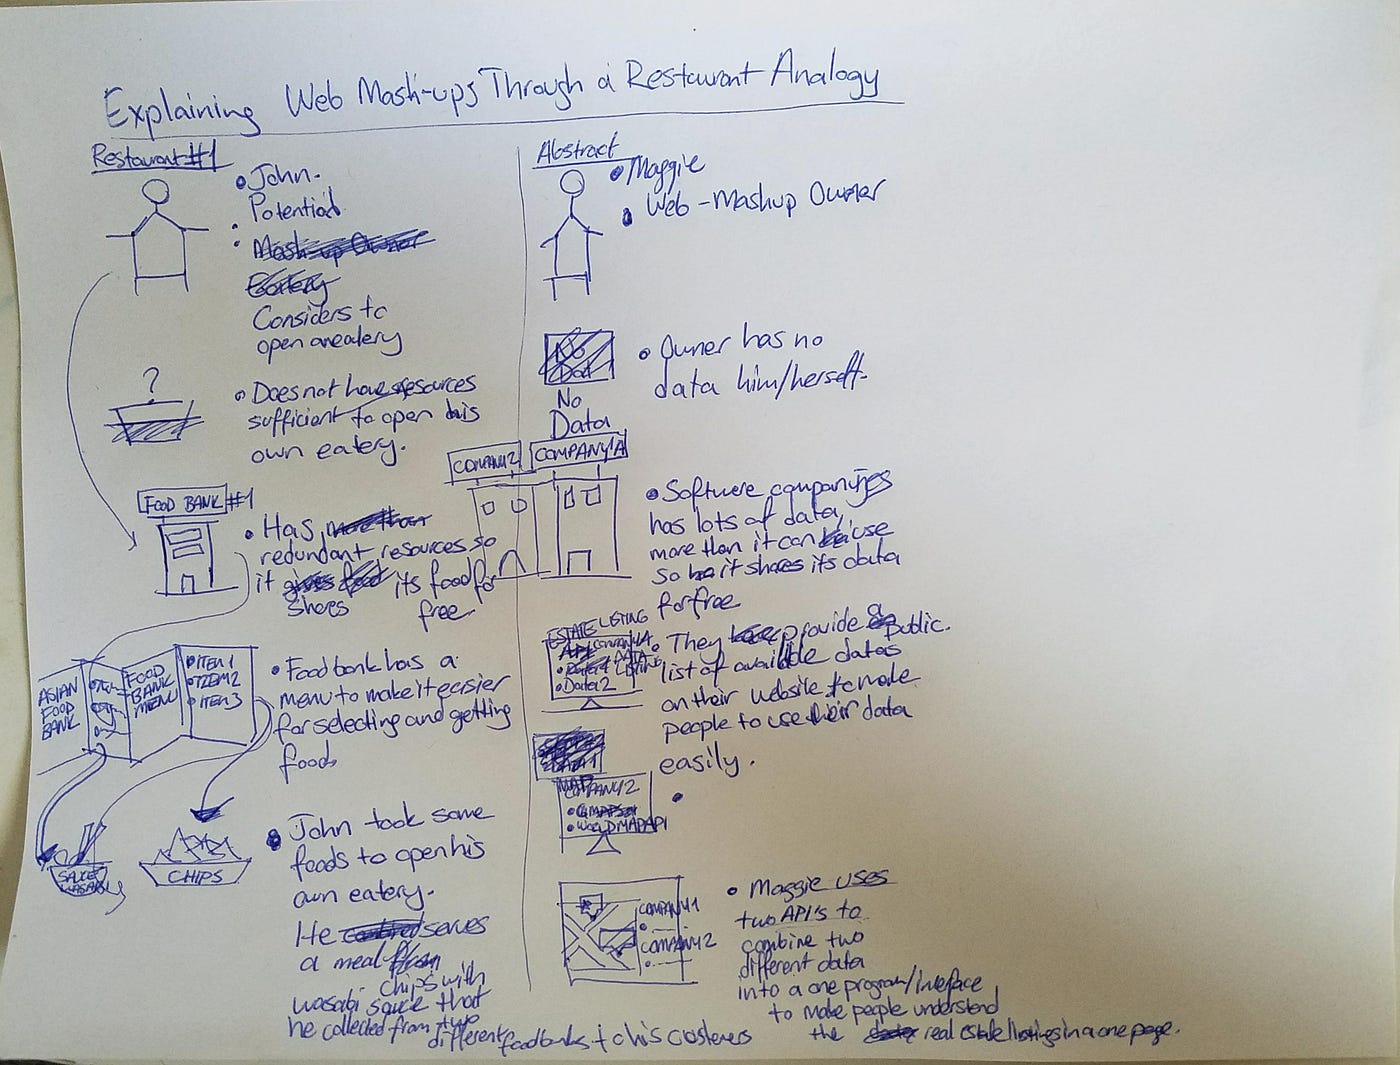 Explaining Web Mash-ups Through a Restaurant Analogy
Restaurant #1
John.
Potential
Mash-up Owner
Eatery
Considers to
open an eatery
?
Does not have resources
sufficient to open his
own eatery.
FOOD BANK #1
Has more than
redundant resources so
it gives food its food for
shares free
ASIAN
FOOD
BANK
FOOD
BANK
MENU
ITEM 1
ITEM 2
ITEM 3
Food bank has a
menu to make it easier
for selecting and getting
food
SAUCE
WASABI
CHIPS
John took some
foods to open his
own eatery.
He serves
a meal from
chips with
wasabi sauce that
he collected from two
different food banks to his costemers
Abstract
Maggie
Web-Mashup Owner
No
Data
Owner has no
data him/herself.
COMPANY2
COMPANY1A
Software companies
has lots of data,
more than it can use
so it shares its data
for free
ESTATE LISTING
API COMPANY1A
Data 2
They provide public
list of available datas
on their website to make
people to use their data
easily.
MAP
COMPANY2
GMAPS
WORLD MAP API
COMPANY1
COMPANY2
Maggie uses
two API's to
combine two
different data
into a one program/inteface
to make people understand
the data real estate listings in a one page.